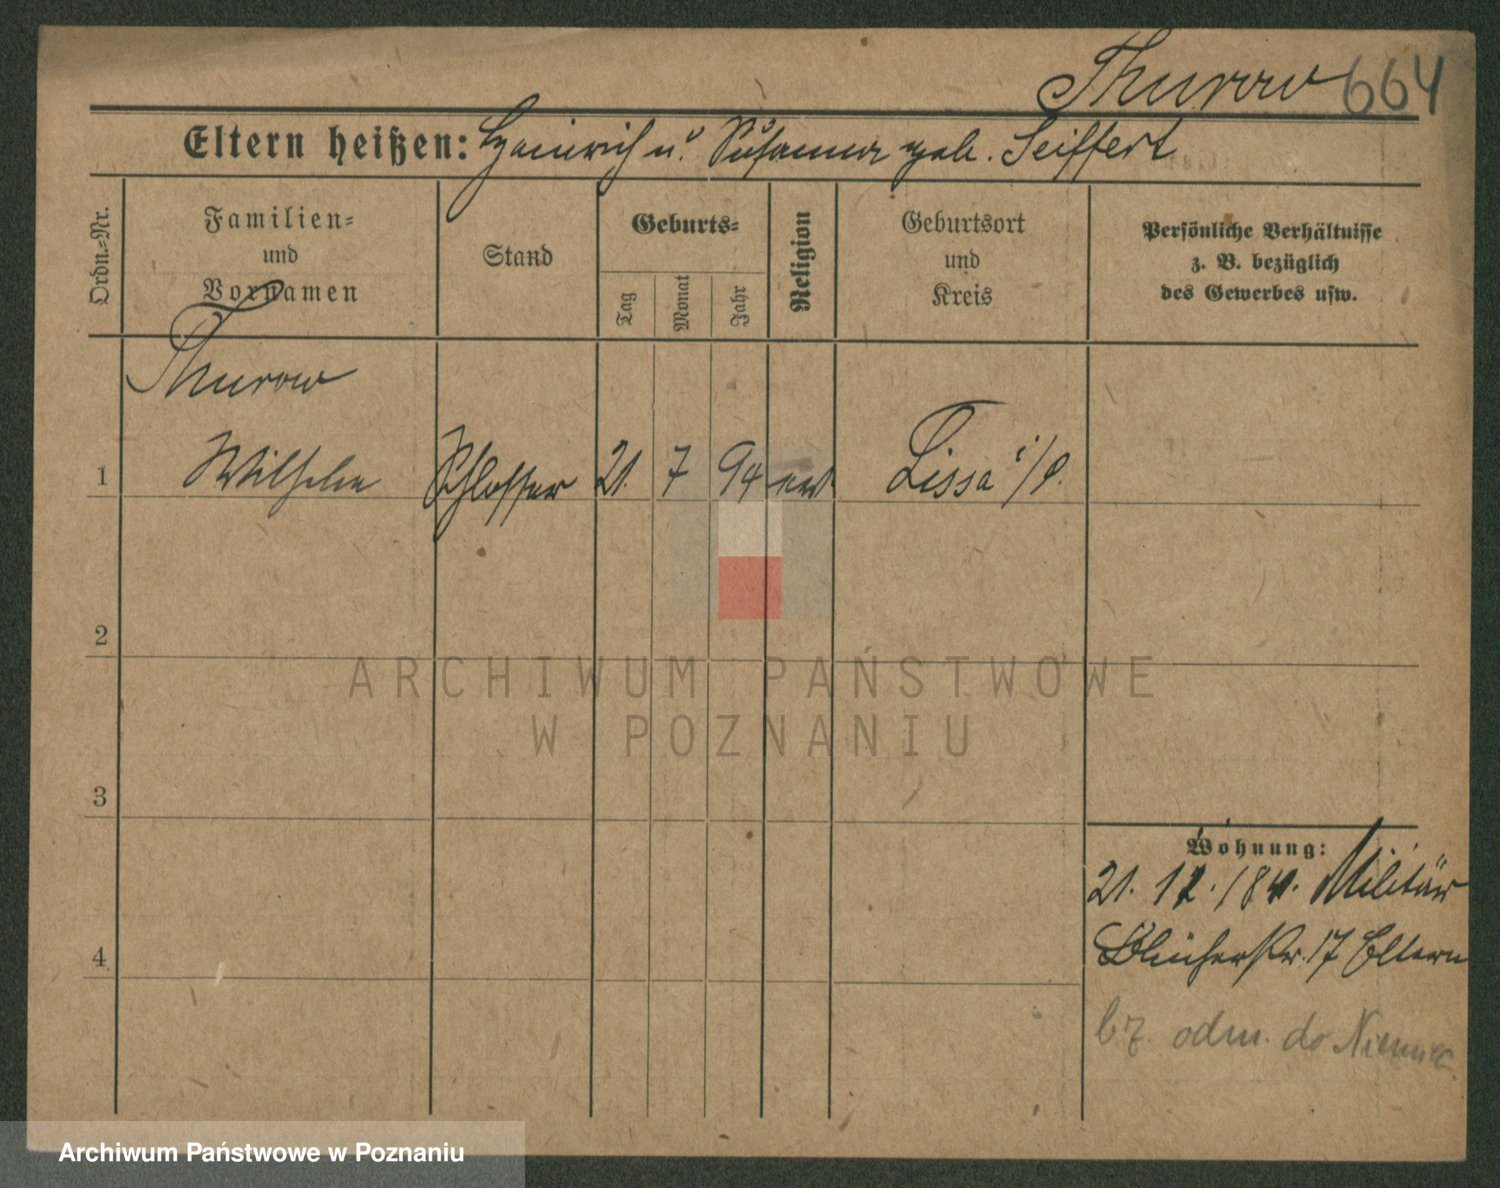 Thurow 664
Eltern heißen: Heinrich u. Susanna geb. Seiffert
Ordn.=Nr.
Familien=
und
Vornamen
Stand
Geburts=
Tag
Monat
Jahr
Religion
Geburtsort
und
Kreis
Persönliche Verhältnisse
z. B. bezüglich
des Gewerbes usw.
Thurow
1 Wilhelm Schlosser 21. 7 94 ev Lissa i/P.
2
3
4
Wohnung:
21. 12. Militär
Blücherstr. 17 Eltern
bz. odm. do Niemiec
ARCHIWUM PAŃSTWOWE
W POZNANIU
Archiwum Państwowe w Poznaniu